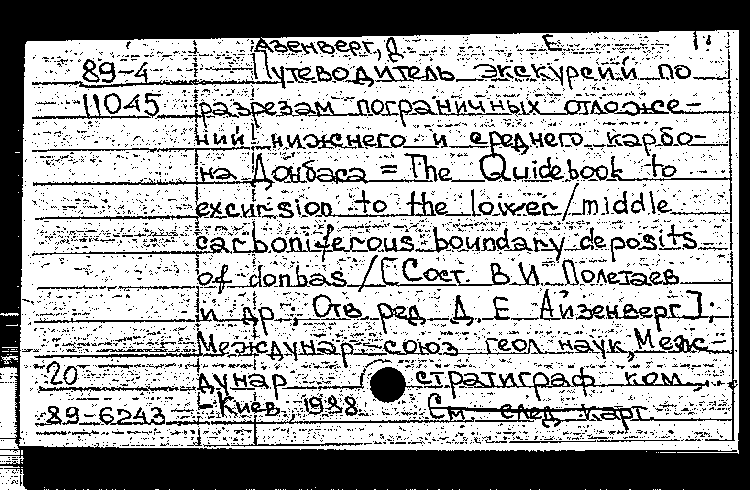 Азенверг, Д. Е
89-4 Путеводитель экскурсий по
11045 разрезам пограничных отложе-
ний нижнего и среднего карбо-
на Донбаса = The Quidebook to
excursion to the lower/middle
carboniferous boundary deposits
of donbas / [Сост. В.И Полетаев
и др ; Отв ред Д. Е Айзенверг];
Междунар союз геол наук, Меж-
20 дунар стратиграф ком.,..
89-6243 – Киев, 1988 См след карт.